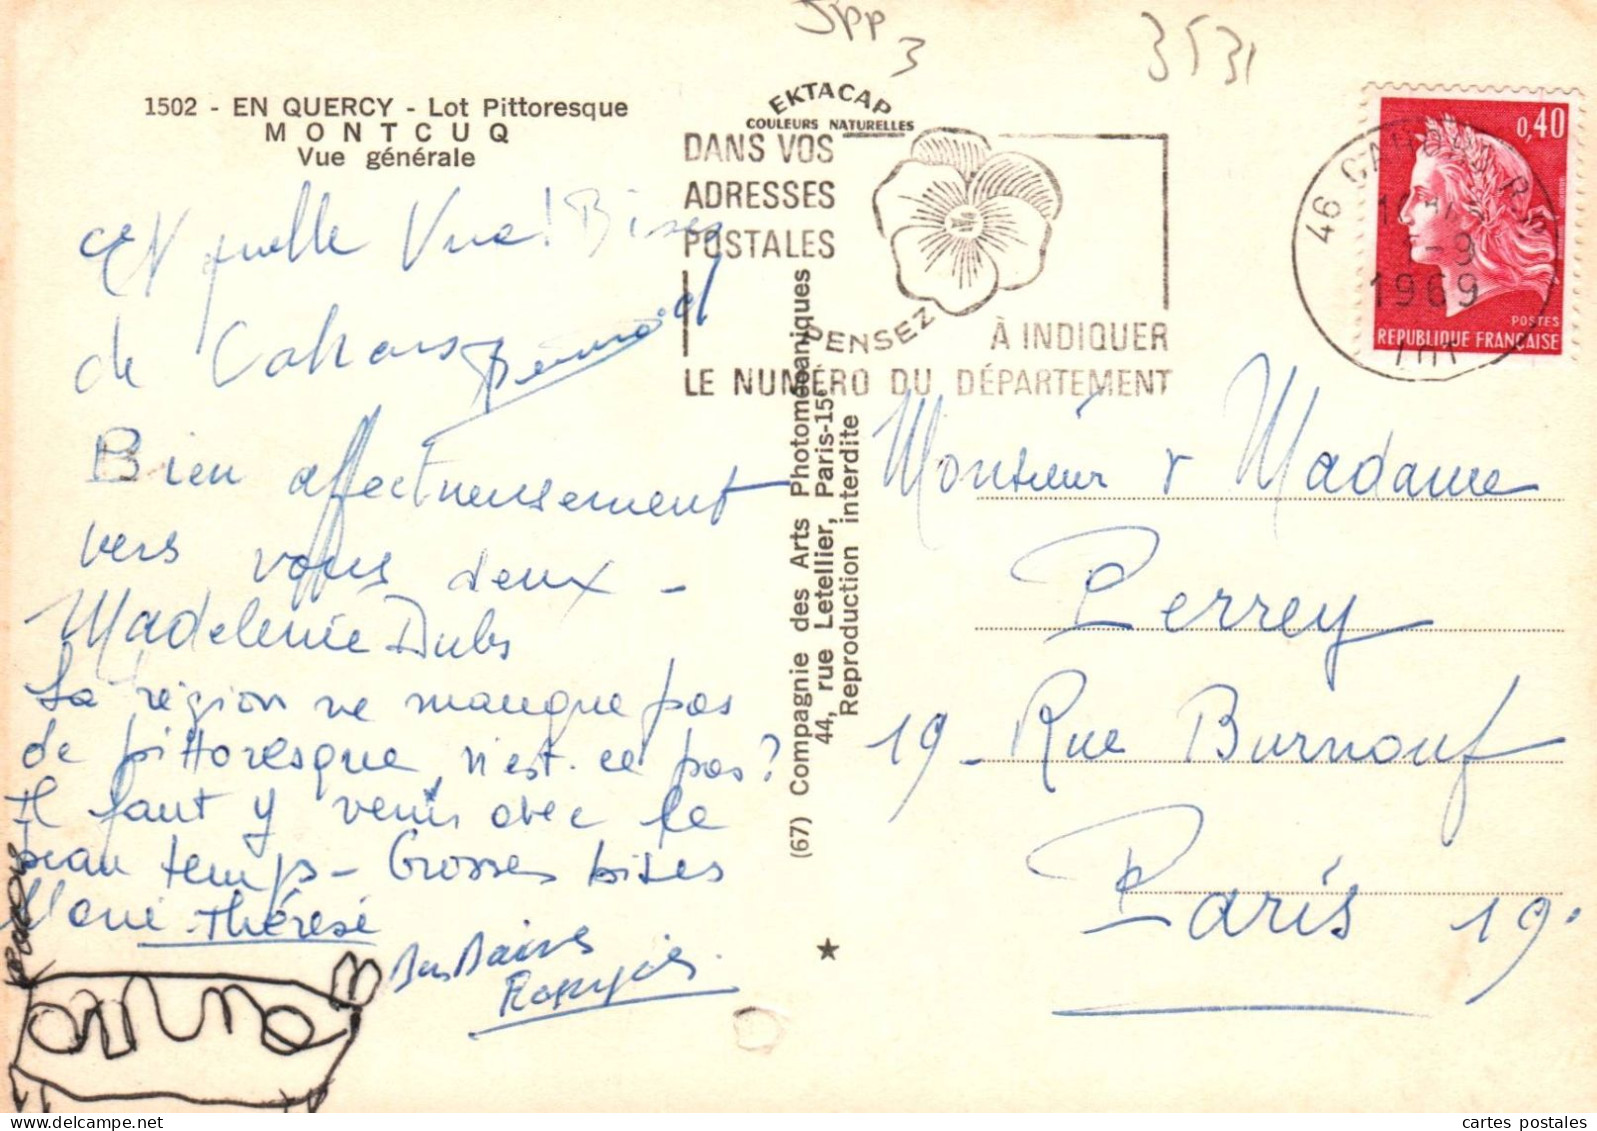 3531
1502 - EN QUERCY - Lot Pittoresque
MONTCUQ
Vue générale
EKTACAP
COULEURS NATURELLES
DANS VOS
ADRESSES
POSTALES
PENSEZ
À INDIQUER
LE NUMÉRO DU DÉPARTEMENT
46 CAHORS
-9
1969
LOT
0,40
POSTES
REPUBLIQUE FRANÇAISE
Et quelle Vue! Bises
de Cahors
Bien affectueusement
vers vous deux -
Madeleine Dubs
La région ne manque pas
de pittoresque, n'est-ce pas?
Il faut y venir avec le
beau temps - Grosses bises
Marie Thérèse
Bons Baisers
François
anna
(67) Compagnie des Arts Photomécaniques
44, rue Letellier, Paris-15e
Reproduction interdite
Monsieur & Madame
Perrey
19 - Rue Burnouf
Paris 19.
cartes postales